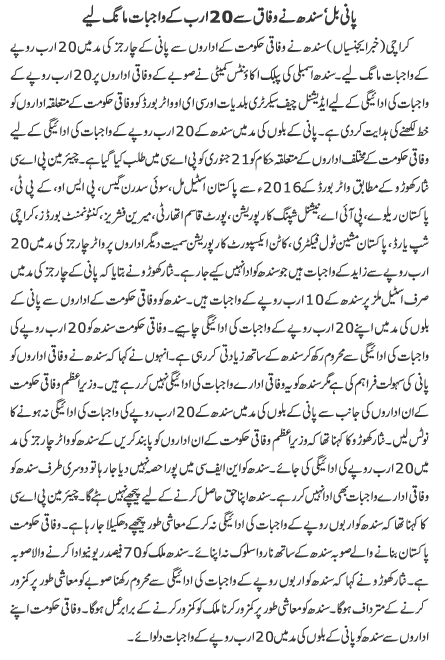 پانی بل‘ سندھ نے وفاق سے 20 ارب کے واجبات مانگ لیے
کراچی (خبر ایجنسیاں) سندھ نے وفاقی حکومت کے اداروں سے پانی کے چارجز کی مد میں 20 ارب روپے
کے واجبات مانگ لیے۔ سندھ اسمبلی کی پبلک اکاؤنٹس کمیٹی نے صوبے کے وفاقی اداروں پر 20 ارب روپے کے
واجبات کی ادائیگی کے لیے ایڈیشنل چیف سیکرٹری بلدیات اور سی ای او واٹر بورڈ کو وفاقی حکومت کے متعلقہ اداروں کو
خط لکھنے کی ہدایت کر دی ہے۔ پانی کے بلوں کی مد میں سندھ کے 20 ارب روپے کے واجبات کی ادائیگی کے لیے
وفاقی حکومت کے مختلف اداروں کے متعلقہ حکام کو 21 جنوری کو پی اے سی میں طلب کیا گیا ہے۔ چیئرمین پی اے سی
نثار کھوڑو کے مطابق واٹر بورڈ کے 2016ء سے پاکستان اسٹیل مل، سوئی سدرن گیس، پی ایس او، کے پی ٹی،
پاکستان ریلوے، پی آئی اے، نیشنل شپنگ کارپوریشن، پورٹ قاسم اتھارٹی، میرین فشریز، کنٹونمنٹ بورڈز، کراچی
شپ یارڈ، پاکستان مشین ٹول فیکٹری، کاٹن ایکسپورٹ کارپوریشن سمیت دیگر اداروں پر واٹر چارجز کی مد میں 20
ارب روپے سے زائد کے واجبات ہیں جو سندھ کو ادا نہیں کیے جا رہے۔ نثار کھوڑو نے بتایا کہ پانی کے چارجز کی مد میں
صرف اسٹیل ملز پر سندھ کے 10 ارب روپے کے واجبات ہیں۔ سندھ کو وفاقی حکومت کے اداروں سے پانی کے
بلوں کی مد میں اپنے 20 ارب روپے کے واجبات کی ادائیگی چاہیے۔ وفاقی حکومت سندھ کو 20 ارب روپے کی
ادائیگی سے محروم رکھ کر سندھ کے ساتھ زیادتی کر رہی ہے۔ انہوں نے کہا کہ سندھ نے وفاقی اداروں کو
پانی کی سہولت فراہم کی ہے مگر سندھ کو یہ وفاقی ادارے واجبات کی ادائیگی نہیں کر رہے ہیں۔ وزیر اعظم وفاقی حکومت
کے ان اداروں کی جانب سے پانی کے بلوں کی مد میں سندھ کے 20 ارب روپے کی واجبات کی ادائیگی نہ ہونے کا
نوٹس لیں۔ نثار کھوڑو کا کہنا تھا کہ وزیر اعظم وفاقی حکومت کے ان اداروں کو پابند کریں کے سندھ کو واٹر چارجز کی مد
میں 20 ارب روپے کی ادائیگی کی جائے۔ سندھ کو این ایف سی میں پورا حصہ نہیں دیا جا رہا تو دوسری طرف سندھ کو
وفاقی ادارے واجبات بھی ادا نہیں کر رہے۔ سندھ اپنا حق حاصل کرنے کے لیے پیچھے نہیں ہٹے گا۔ چیئرمین پی اے سی
کا کہنا تھا کہ سندھ کو اربوں روپے کے واجبات کی ادائیگی نہ کر کے معاشی طور پر پیچھے دھکیلا جا رہا ہے۔ وفاقی حکومت
پاکستان بنانے والے صوبہ سندھ کے ساتھ ناروا سلوک نہ اپنائے۔ سندھ ملک کو 70 فیصد ریونیو ادا کرنے والا صوبہ
ہے۔ نثار کھوڑو نے کہا کہ سندھ کو اربوں روپے کے واجبات کی ادائیگی سے محروم رکھنا صوبے کو معاشی طور پر کمزور
کرنے کے مترادف ہو گا۔ سندھ کو معاشی طور پر کمزور کرنا ملک کو کمزور کرنے کے برابر عمل ہو گا۔ وفاقی حکومت اپنے
اداروں سے سندھ کو پانی کے بلوں کی مد میں 20 ارب روپے کے واجبات دلوائے۔